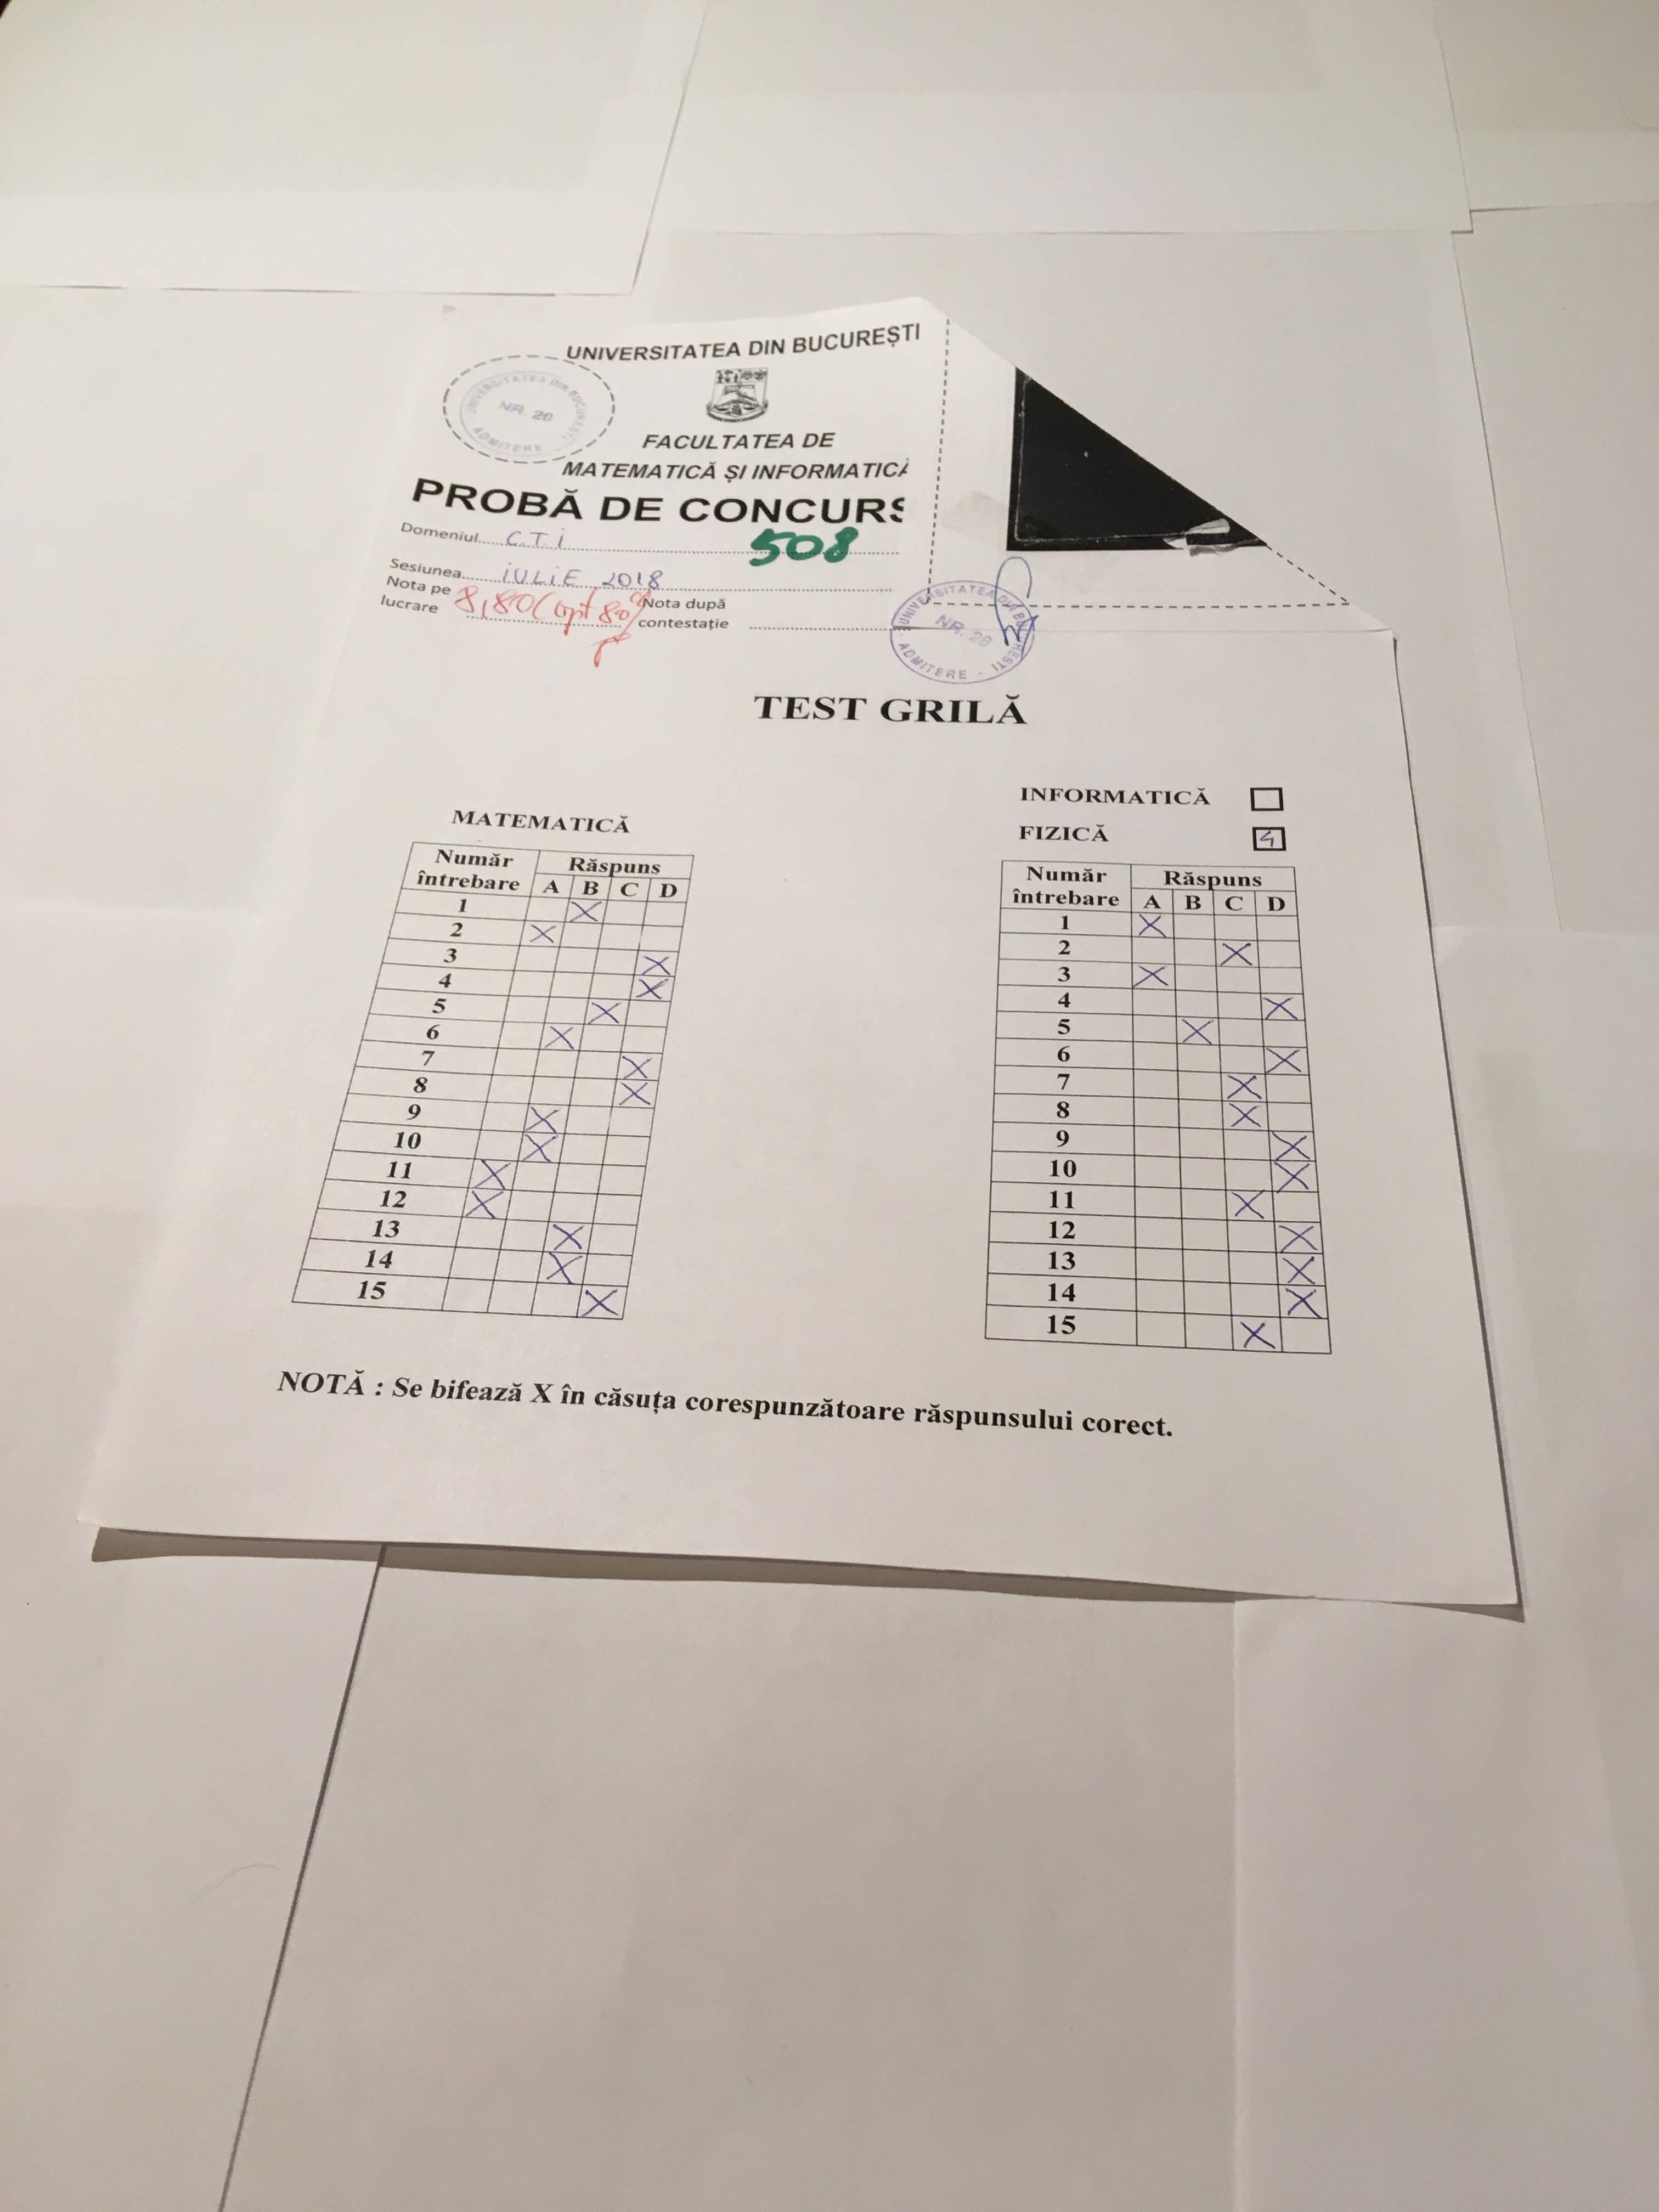 UNIVERSITATEA DIN BUCUREȘTI
UNIVERSITATEA DIN BUCUREȘTI
NR. 20
ADMITERE
FACULTATEA DE
MATEMATICĂ ȘI INFORMATICĂ
PROBĂ DE CONCURS
Domeniul C.T.I 508
Sesiunea IULIE 2018
Nota pe lucrare 8,80 (opt 80%
Nota după contestație
UNIVERSITATEA DIN BUCUREȘTI
NR. 20
ADMITERE
TEST GRILĂ
MATEMATICĂ
Număr întrebare Răspuns
A B C D
1 X
2 X
3 X
4 X
5 X
6 X
7 X
8 X
9 X
10 X
11 X
12 X
13 X
14 X
15 X
INFORMATICĂ
FIZICĂ 4
Număr întrebare Răspuns
A B C D
1 X
2 X
3 X
4 X
5 X
6 X
7 X
8 X
9 X
10 X
11 X
12 X
13 X
14 X
15 X
NOTĂ : Se bifează X în căsuța corespunzătoare răspunsului corect.